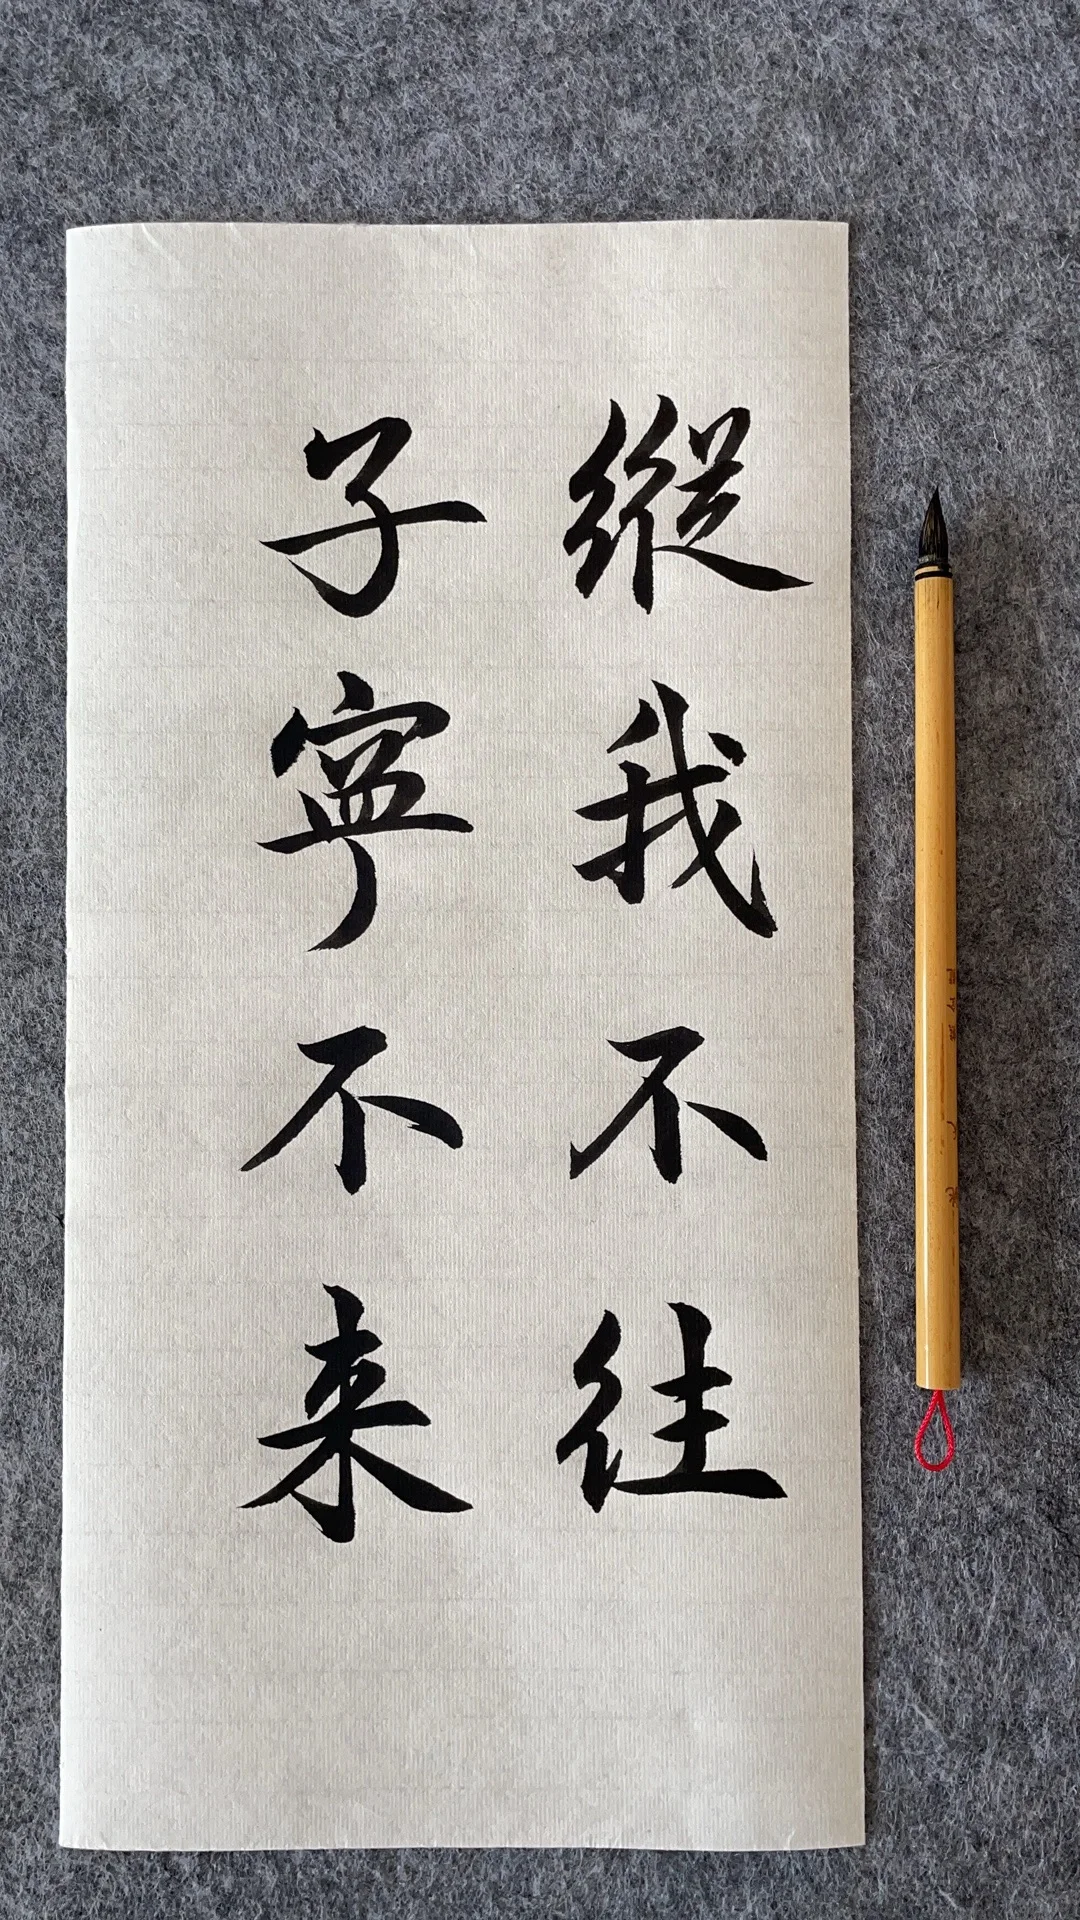 縱我不往
子寧不来